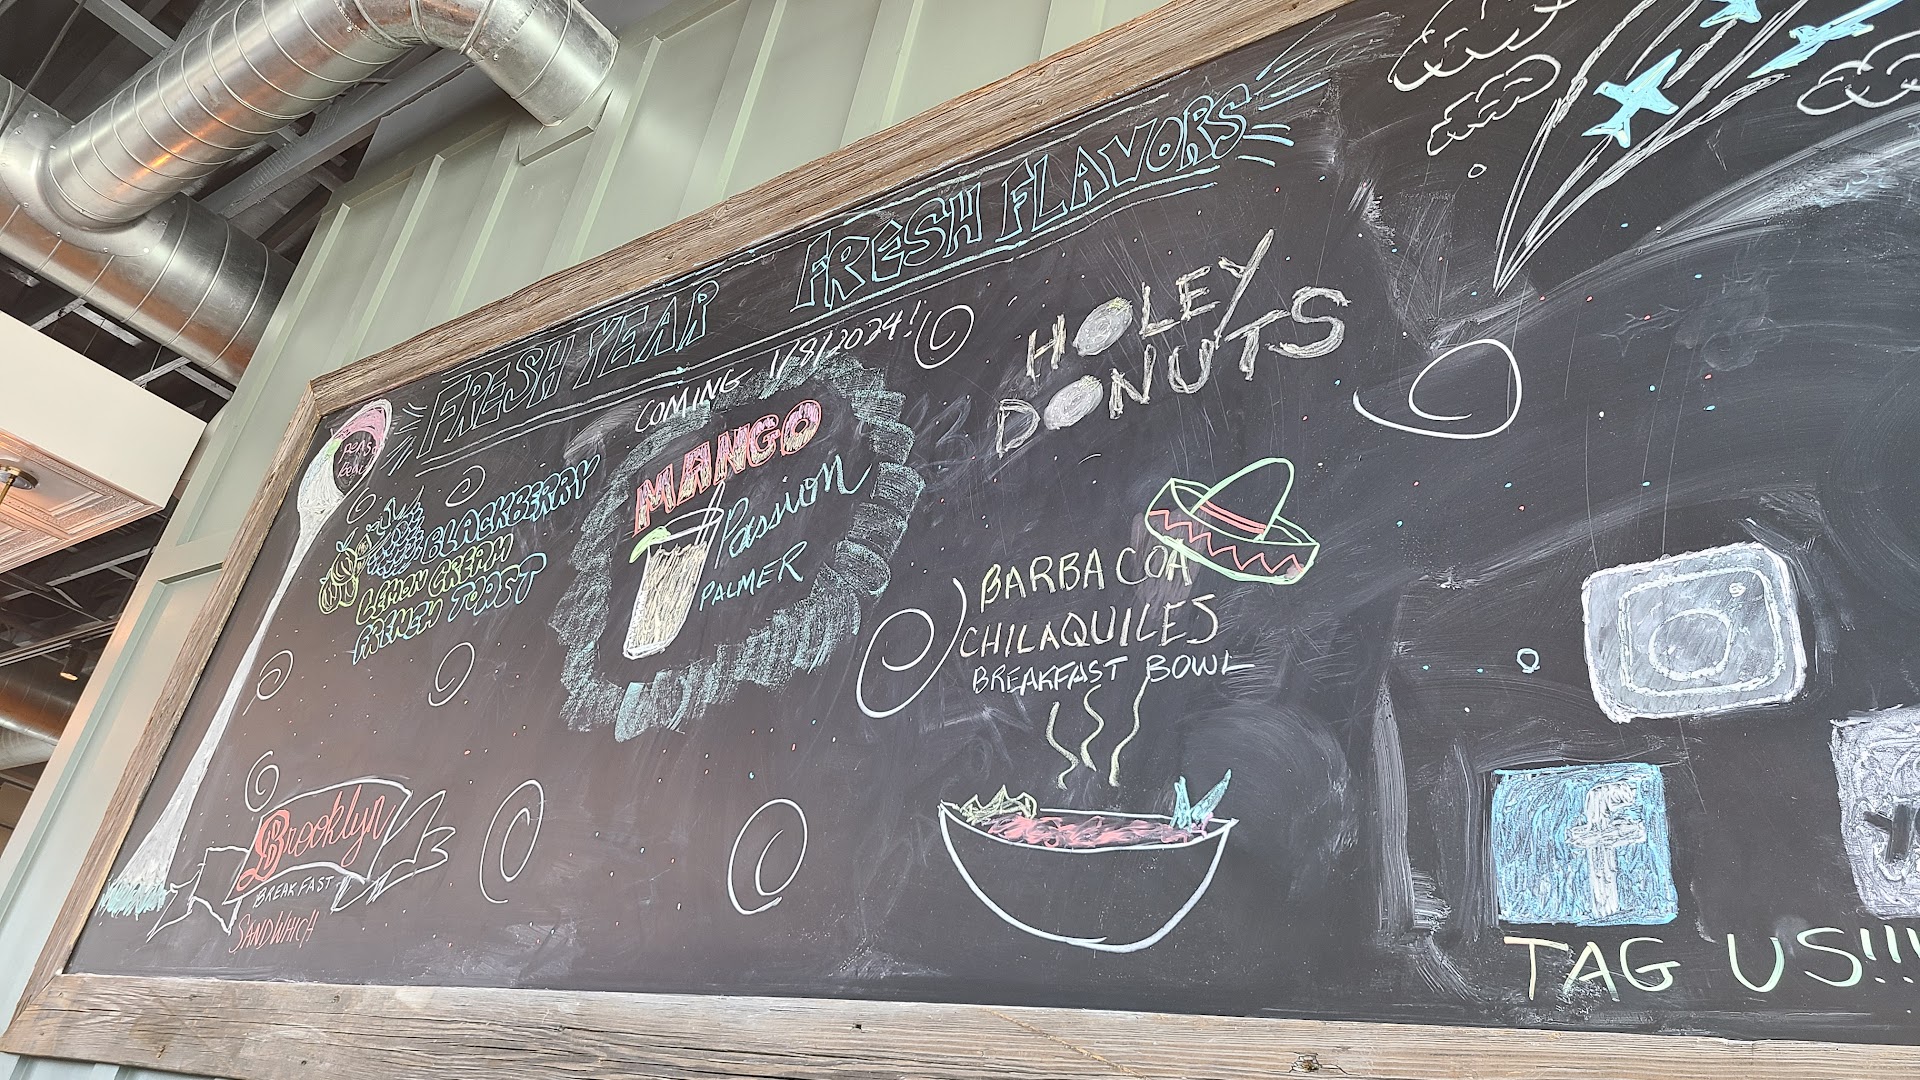 FRESH YEAR FRESH FLAVORS
COMING 1/8/2024!
HOLEY
DONUTS
BLACKBERRY
LEMON CREAM
FRENCH TOAST
MANGO
Passion
PALMER
BARBACOA
CHILAQUILES
BREAKFAST BOWL
Brooklyn
BREAKFAST
SANDWHICH
f
TAG US!!!